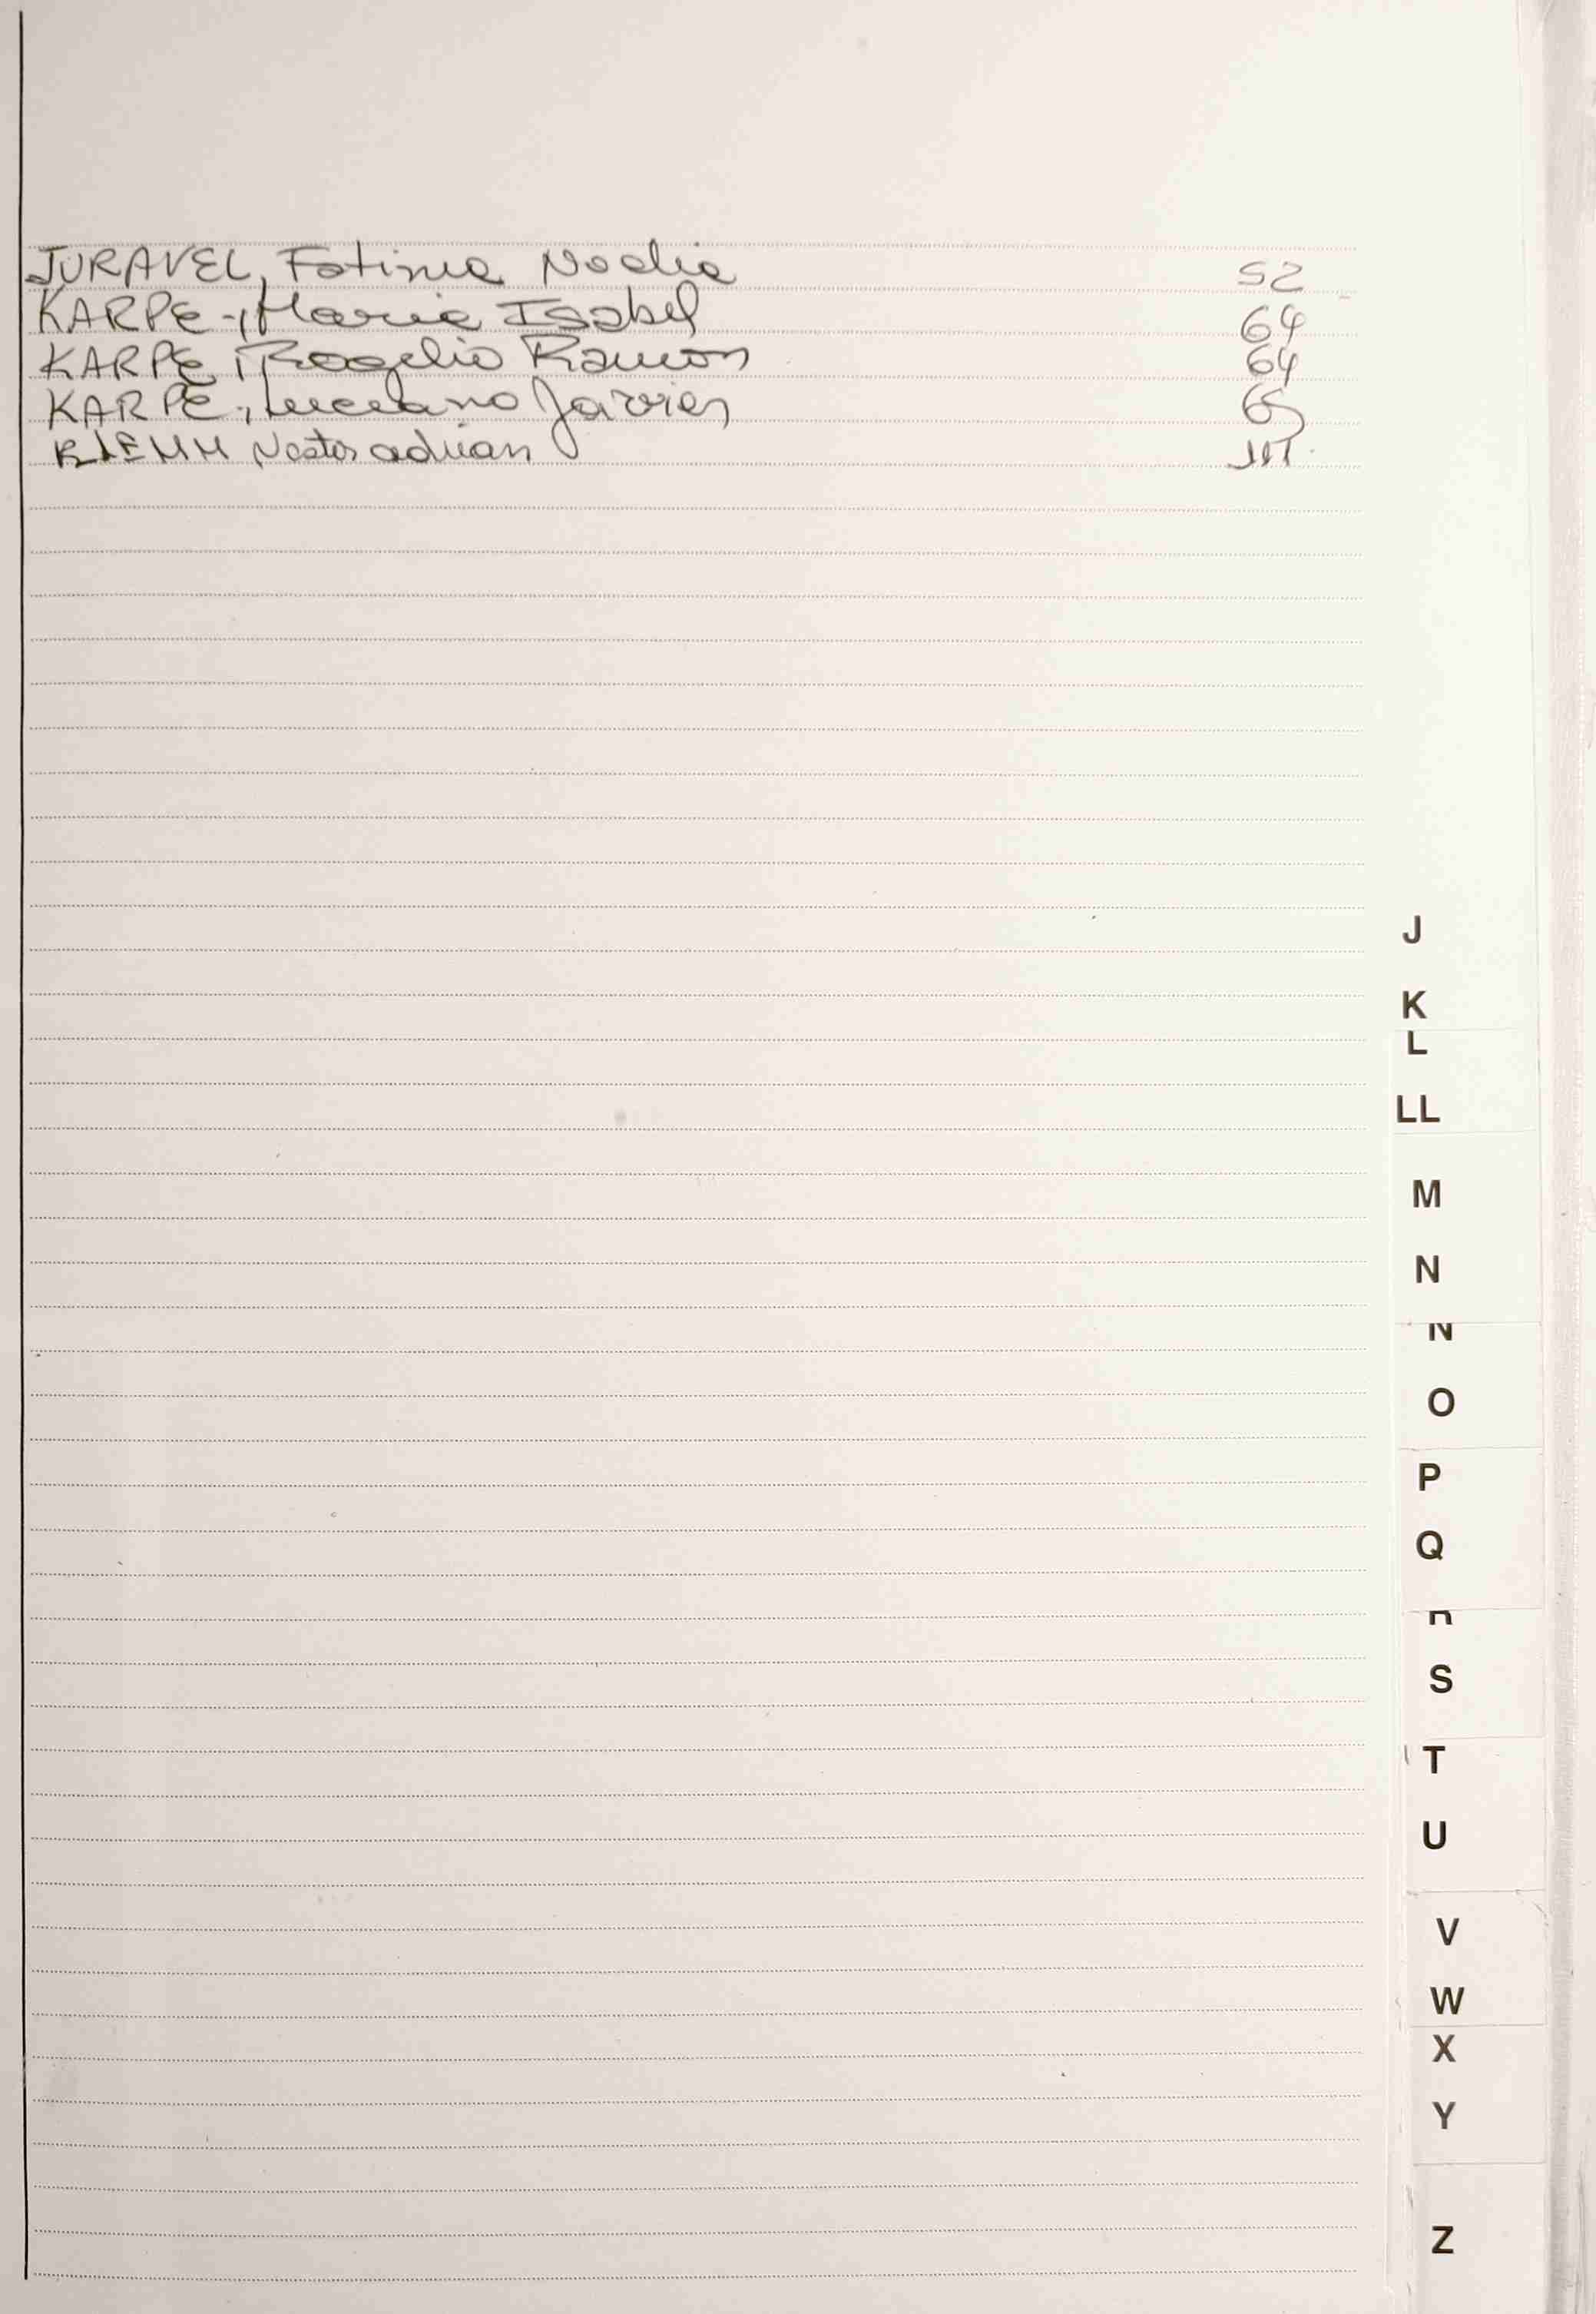 JURAVEL, Fatima Noelia 52
KARPE, Maria Isabel 64
KARPE, Rogelio Ramon 64
KARPE, Luciano Javier 65
Nestor adrian
J
K
L
LL
M
N
N
O
P
Q
R
S
T
U
V
W
X
Y
Z